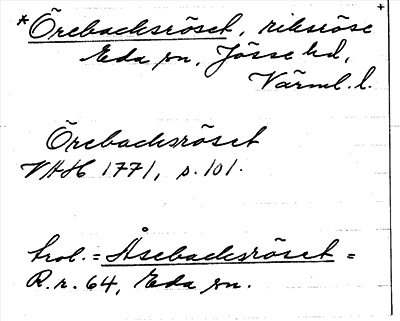 *Örebacksröset, riksröse
Eda sn, Jösse hd,
Värml. l.
Örebacksröset
VAH 1771, s. 101.
trol. = Åsebacksröset =
R.r. 64, Eda sn.